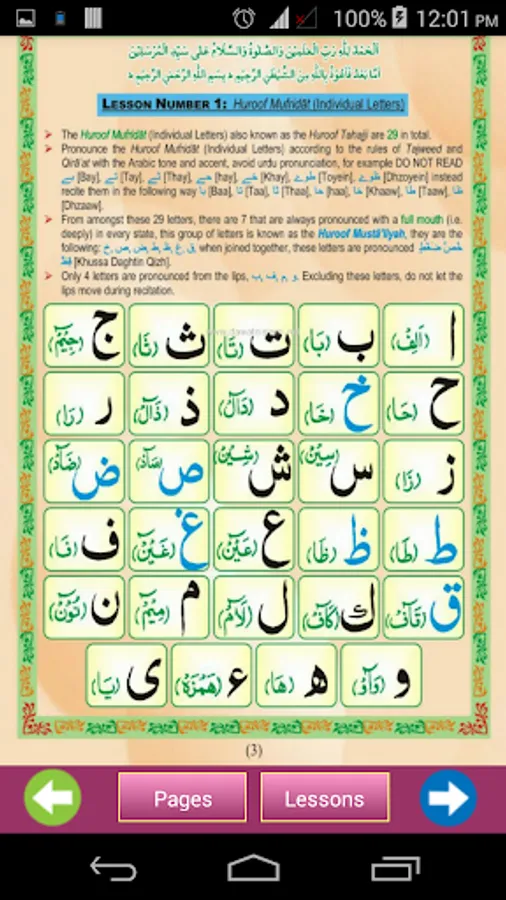 100% 12:01 PM
اَلْحَمْدُ لِلّٰهِ رَبِّ الْعٰلَمِيْنَ وَالصَّلٰوةُ وَالسَّلَامُ عَلٰى سَيِّدِ الْمُرْسَلِيْنَ
اَمَّا بَعْدُ فَاَعُوْذُ بِاللّٰهِ مِنَ الشَّيْطٰنِ الرَّجِيْمِ ط بِسْمِ اللّٰهِ الرَّحْمٰنِ الرَّحِيْمِ ط
LESSON NUMBER 1: Huroof Mufridāt (Individual Letters)
➤ The Huroof Mufridāt (Individual Letters) also known as the Huroof Tahajji are 29 in total.
➤ Pronounce the Huroof Mufridāt (Individual Letters) according to the rules of Tajweed and
Qirā'at with the Arabic tone and accent, avoid urdu pronunciation, for example DO NOT READ
بے [Bay], تے [Tay], ثے [Thay], حے [hay], خے [Khay], طوے [Toyein], ظوے [Dhzoyein] instead
recite them in the following way بَا [Baa], تَا [Taa], ثَا [Thaa], حَا [haa], خَا [Khaaw], طَا [Taaw], ظَا
[Dhzaaw].
➤ From amongst these 29 letters, there are 7 that are always pronounced with a full mouth (i.e.
deeply) in every state, this group of letters is known as the Huroof Musta'liyah, they are the
following: خ, ص, ض, ط, ظ, غ, ق, when joined together, these letters are pronounced خُصَّ ضَغْطٍ
قِظْ [Khussa Daghtin Qizh].
➤ Only 4 letters are pronounced from the lips, ب, ف, م, و. Excluding these letters, do not let the
lips move during recitation.
ا (اَلِفْ) ب (بَا) ت (تَا) ث (ثَا) ج (جِيْمْ)
ح (حَا) خ (خَا) د (دَالْ) ذ (ذَالْ) ر (رَا)
ز (زَا) س (سِيْنْ) ش (شِيْنْ) ص (صَادْ) ض (ضَادْ)
ط (طَا) ظ (ظَا) ع (عَيْنْ) غ (غَيْنْ) ف (فَا)
ق (قَافْ) ك (كَافْ) ل (لَامْ) م (مِيْمْ) ن (نُوْنْ)
و (وَاوْ) ه (هَا) ء (هَمْزَهْ) ى (يَا)
(3)
Pages Lessons